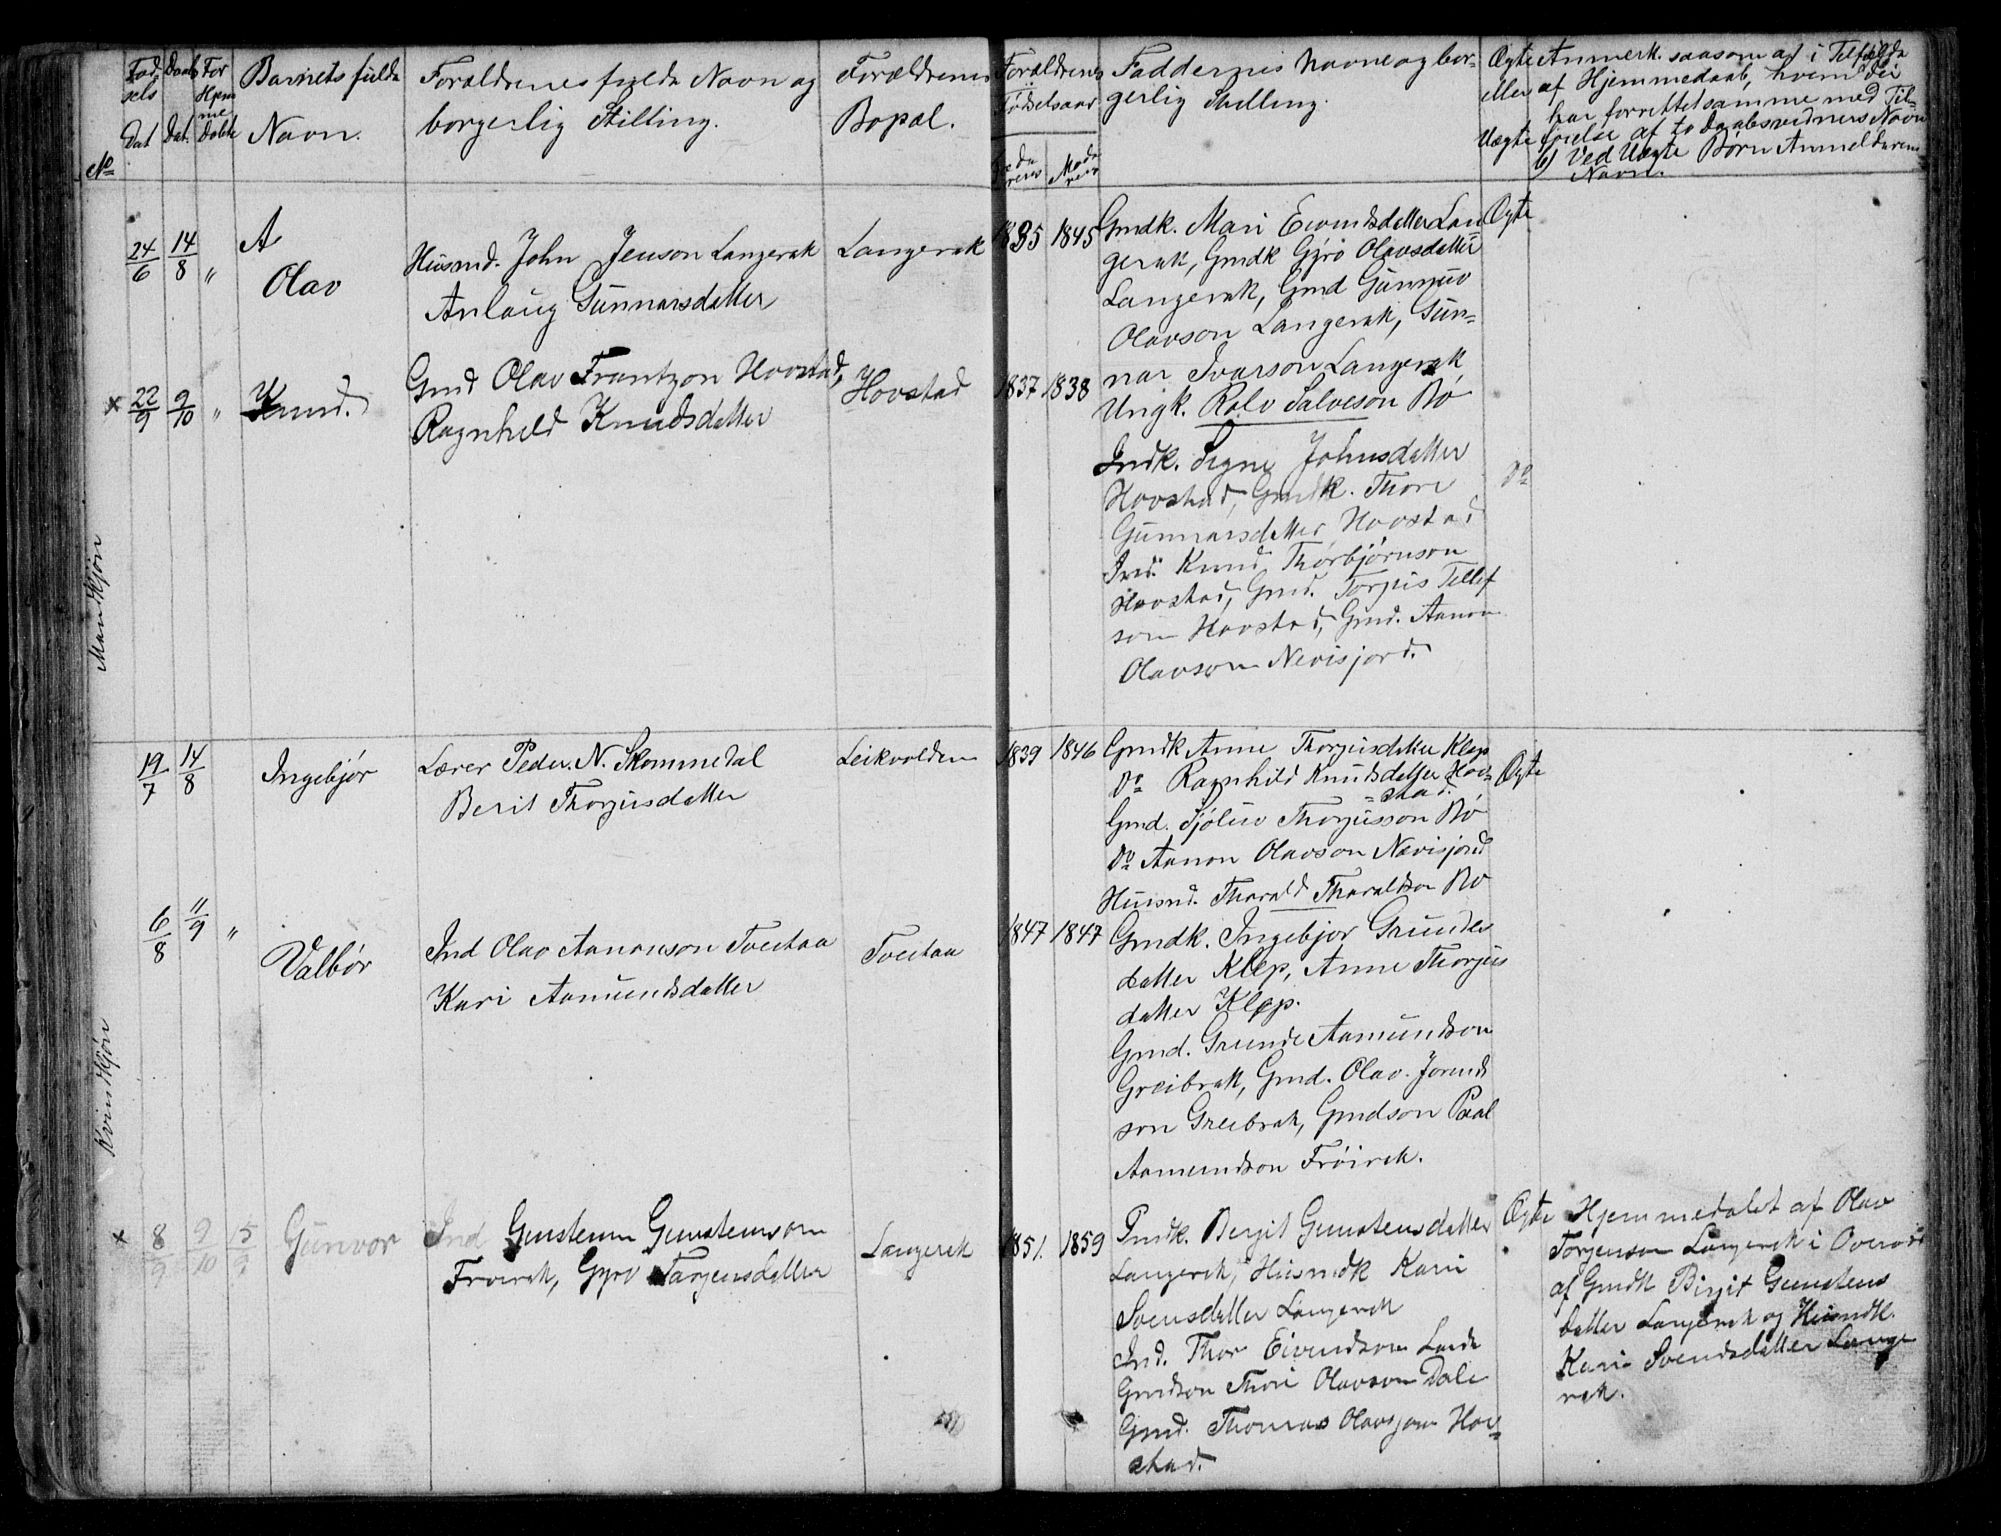 Fød
sels
Dat
Daabs
Dat.
For
Hjem
me
Døbte
Barnets fulde
Navn.
Forældrenes fulde Navn og
borgerlig Stilling.
Forældrenes
Bopæl.
Forældrenes
Fødselsaar
Faddernes Navne og bor-
gerlig Stilling.
Ægte
eller
Uægte
Anmerk. saasom a) i Tilfælde
af Hjemmedaab, hvem der
har forrettet samme med Til-
føielse af to Daabsvidners Navn
b) Ved Uægte Børn Anmelderens
Navn.
No
Mandkjøn
24/6 14/8 " A
Olav
Husmd. John Jenson Langerak
Anlaug Gunnarsdatter
Langerak
1835 1845
Gmdk. Mari Eivindsdatter Lan
gerak, Gmdk Gyro Olavsdatter
Langerak, Gmd Gunnuv
Olavson Langerak, Gun-
nar Ivarson Langerak,
Ungk. Rolv Salveson Bø
Ægte
x 22/9 9/10 " Knud.
Gmd Olav Frantzon Hovstad,
Ragnhild Knudsdatter
Hovstad
1837 1838
Indk. Signe Johnsdatter
Hovstad, Gmdk. Thore
Gunnarsdatter Hovstad
Ind. Knud Thorbjørnson
Hovstad, Gmd. Torjus Tellef
son Hovstad, Gmd. Aanon
Olavson Nevisjord.
Do
Kvindkjøn
19/7 14/8
Ingebjør
Lærer Peder. N. Skommedal
Berit Thorjusdatter
Leikvolden
1839 1846
Gmdk Anne Thorjusdatter Klep
Do Ragnhild Knudsdatter Hov=
=stad.
Gmd. Sjøluv Thorjusson Bø
Do Aanon Olavson Nævisjord
Husmd. Tharald Tharaldson Bø
Ægte
6/8 11/9 "
Valbør
Ind Olav Aanonson Tveitaa
Kari Aamundsdatter
Tveitaa
1847 1847
Gmdk. Ingebjor Grundes
datter Klep, Anne Thorjus
datter Klep.
Gmd. Grunde Aamundson
Greibrak, Gmd. Olav. Jorund
son Greibrak, Gmdson Paal
Aamundson Frøirak.
x 8/9 9/10 15/9
Gunvor
Ind Gunstenn Gunstensom
Froirak, Gyro Tarjeusdatter
Langerak
1851. 1859
Gmdk. Bergit Gunstensdatter
Langerak, Husmdk Kari
Svensdatter Langerak
Ind. Thor Eivindson Lande
Gmdson Thore Olavson Dale
Gmd. Thomas Olavson Hov=
stad.
Ægte
Hjemmedøbt af Olav
Torjenson Langerak i Overvær
af Gmdk Birgit Gunstens
datter Langerak og Husmdk.
Kari Svendsdatter Lange
rak.